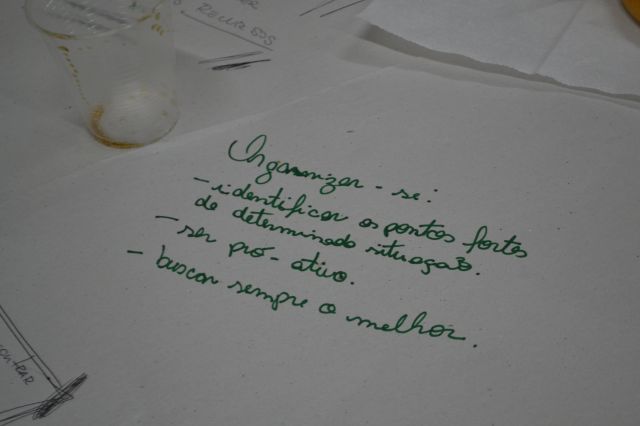 RECURSOS
Organizar-se:
- identificar os pontos fortes
de determinada situação.
- ser pró-ativo.
- buscar sempre o melhor.